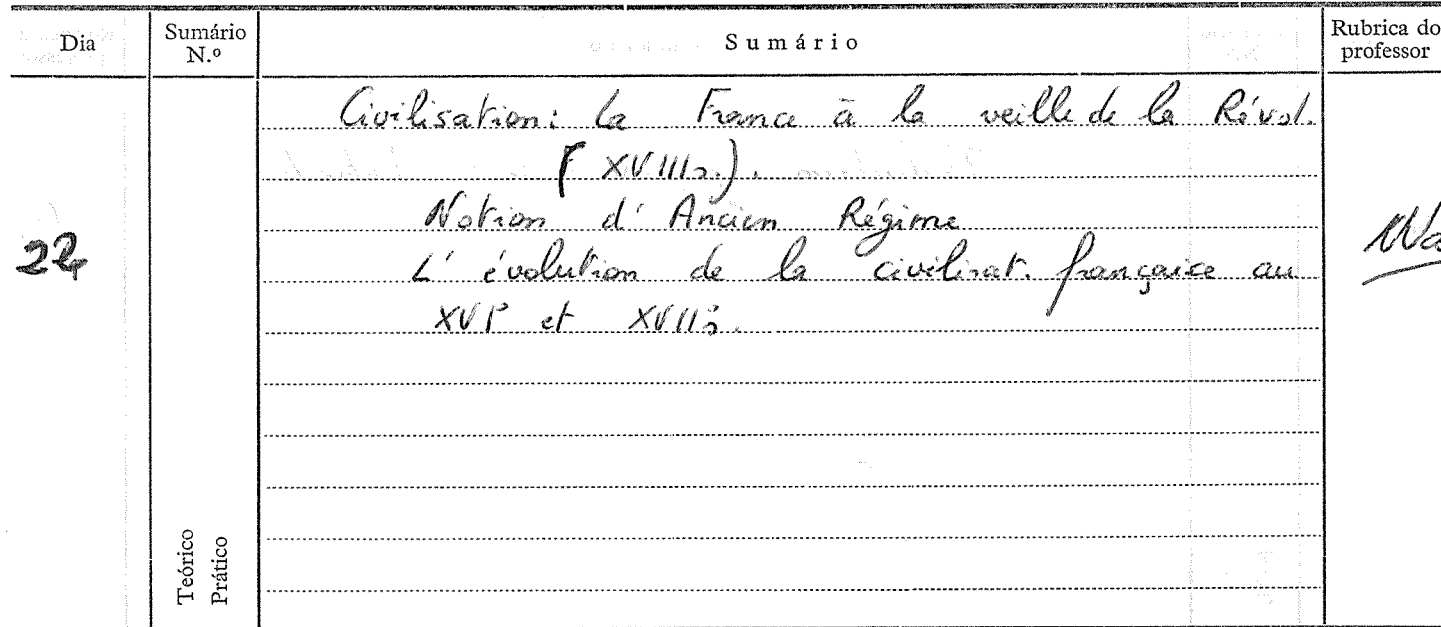 Dia Sumário N.º Sumário Rubrica do professor
Civilisation: La France à la veille de la Révol.
(XVIIIs.).
Notion d'Ancien Régime
L'évolution de la civilisat. française au
XVIe et XVIIs.
Teórico
Prático